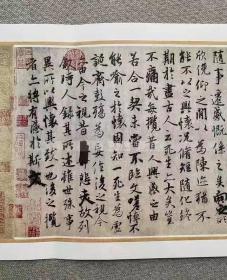 隨事遷感慨係之矣向之所
欣俛仰之閒以為陳迹猶不
能不以之興懷況脩短隨化終
期於盡古人云死生亦大矣豈
不痛哉每攬昔人興感之由
若合一契未嘗不臨文嗟悼不
能喻之於懷固知一死生為虛
誕齊彭殤為妄作後之視今
亦由今之視昔悲夫故列
敘時人錄其所述雖世殊事
異所以興懷其致一也後之攬
者亦將有感於斯文